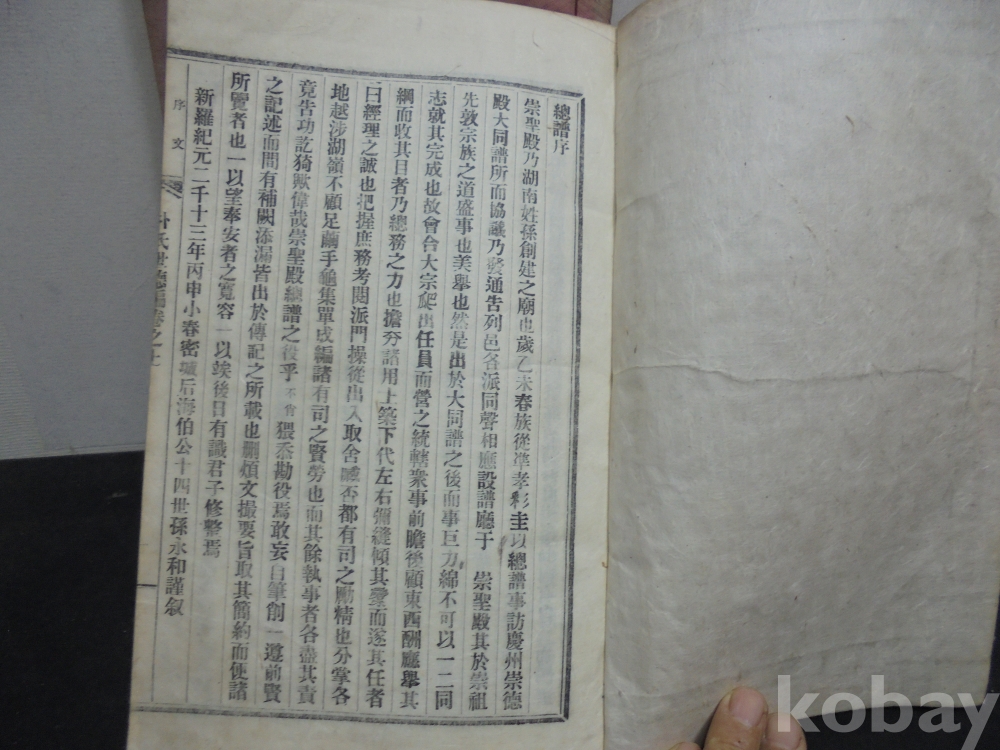 總譜序
崇聖殿乃湖南姓孫創建之廟也歲乙未春族從準孝彩圭以總譜事訪慶州崇德
殿大同譜所而協議乃發通告列邑各派同聲相應設譜廳于 崇聖殿其於崇祖
先敦宗族之道盛事也美舉也然是出於大同譜之後而事巨力綿不可以一二同
志就其完成也故會合大宗爬出任員而營之統轄衆事前瞻後顧東西酬應舉其
綱而收其目者乃總務之力也擔夯諸用上築下代左右彌縫傾其壑而遂其任者
曰經理之誠也把握庶務考閱派門操從出入取舍臧否都有司之勵精也分掌各
地越涉湖嶺不顧足繭手龜集單成編諸有司之賢勞也而其餘執事者各盡其責
竟告功訖猗歟偉哉崇聖殿總譜之役乎不肖猥忝勘役焉敢妄自筆創一遵前賢
之記述而間有補闕添漏皆出於傳記之所載也刪煩文撮要旨取其簡約而便諸
所覽者也一以望奉安者之寬容一以竢後日有識君子修整焉
新羅紀元二千十三年丙申小春密城后海伯公十四世孫永和謹叙
序文
朴氏世德編卷之上
kobay